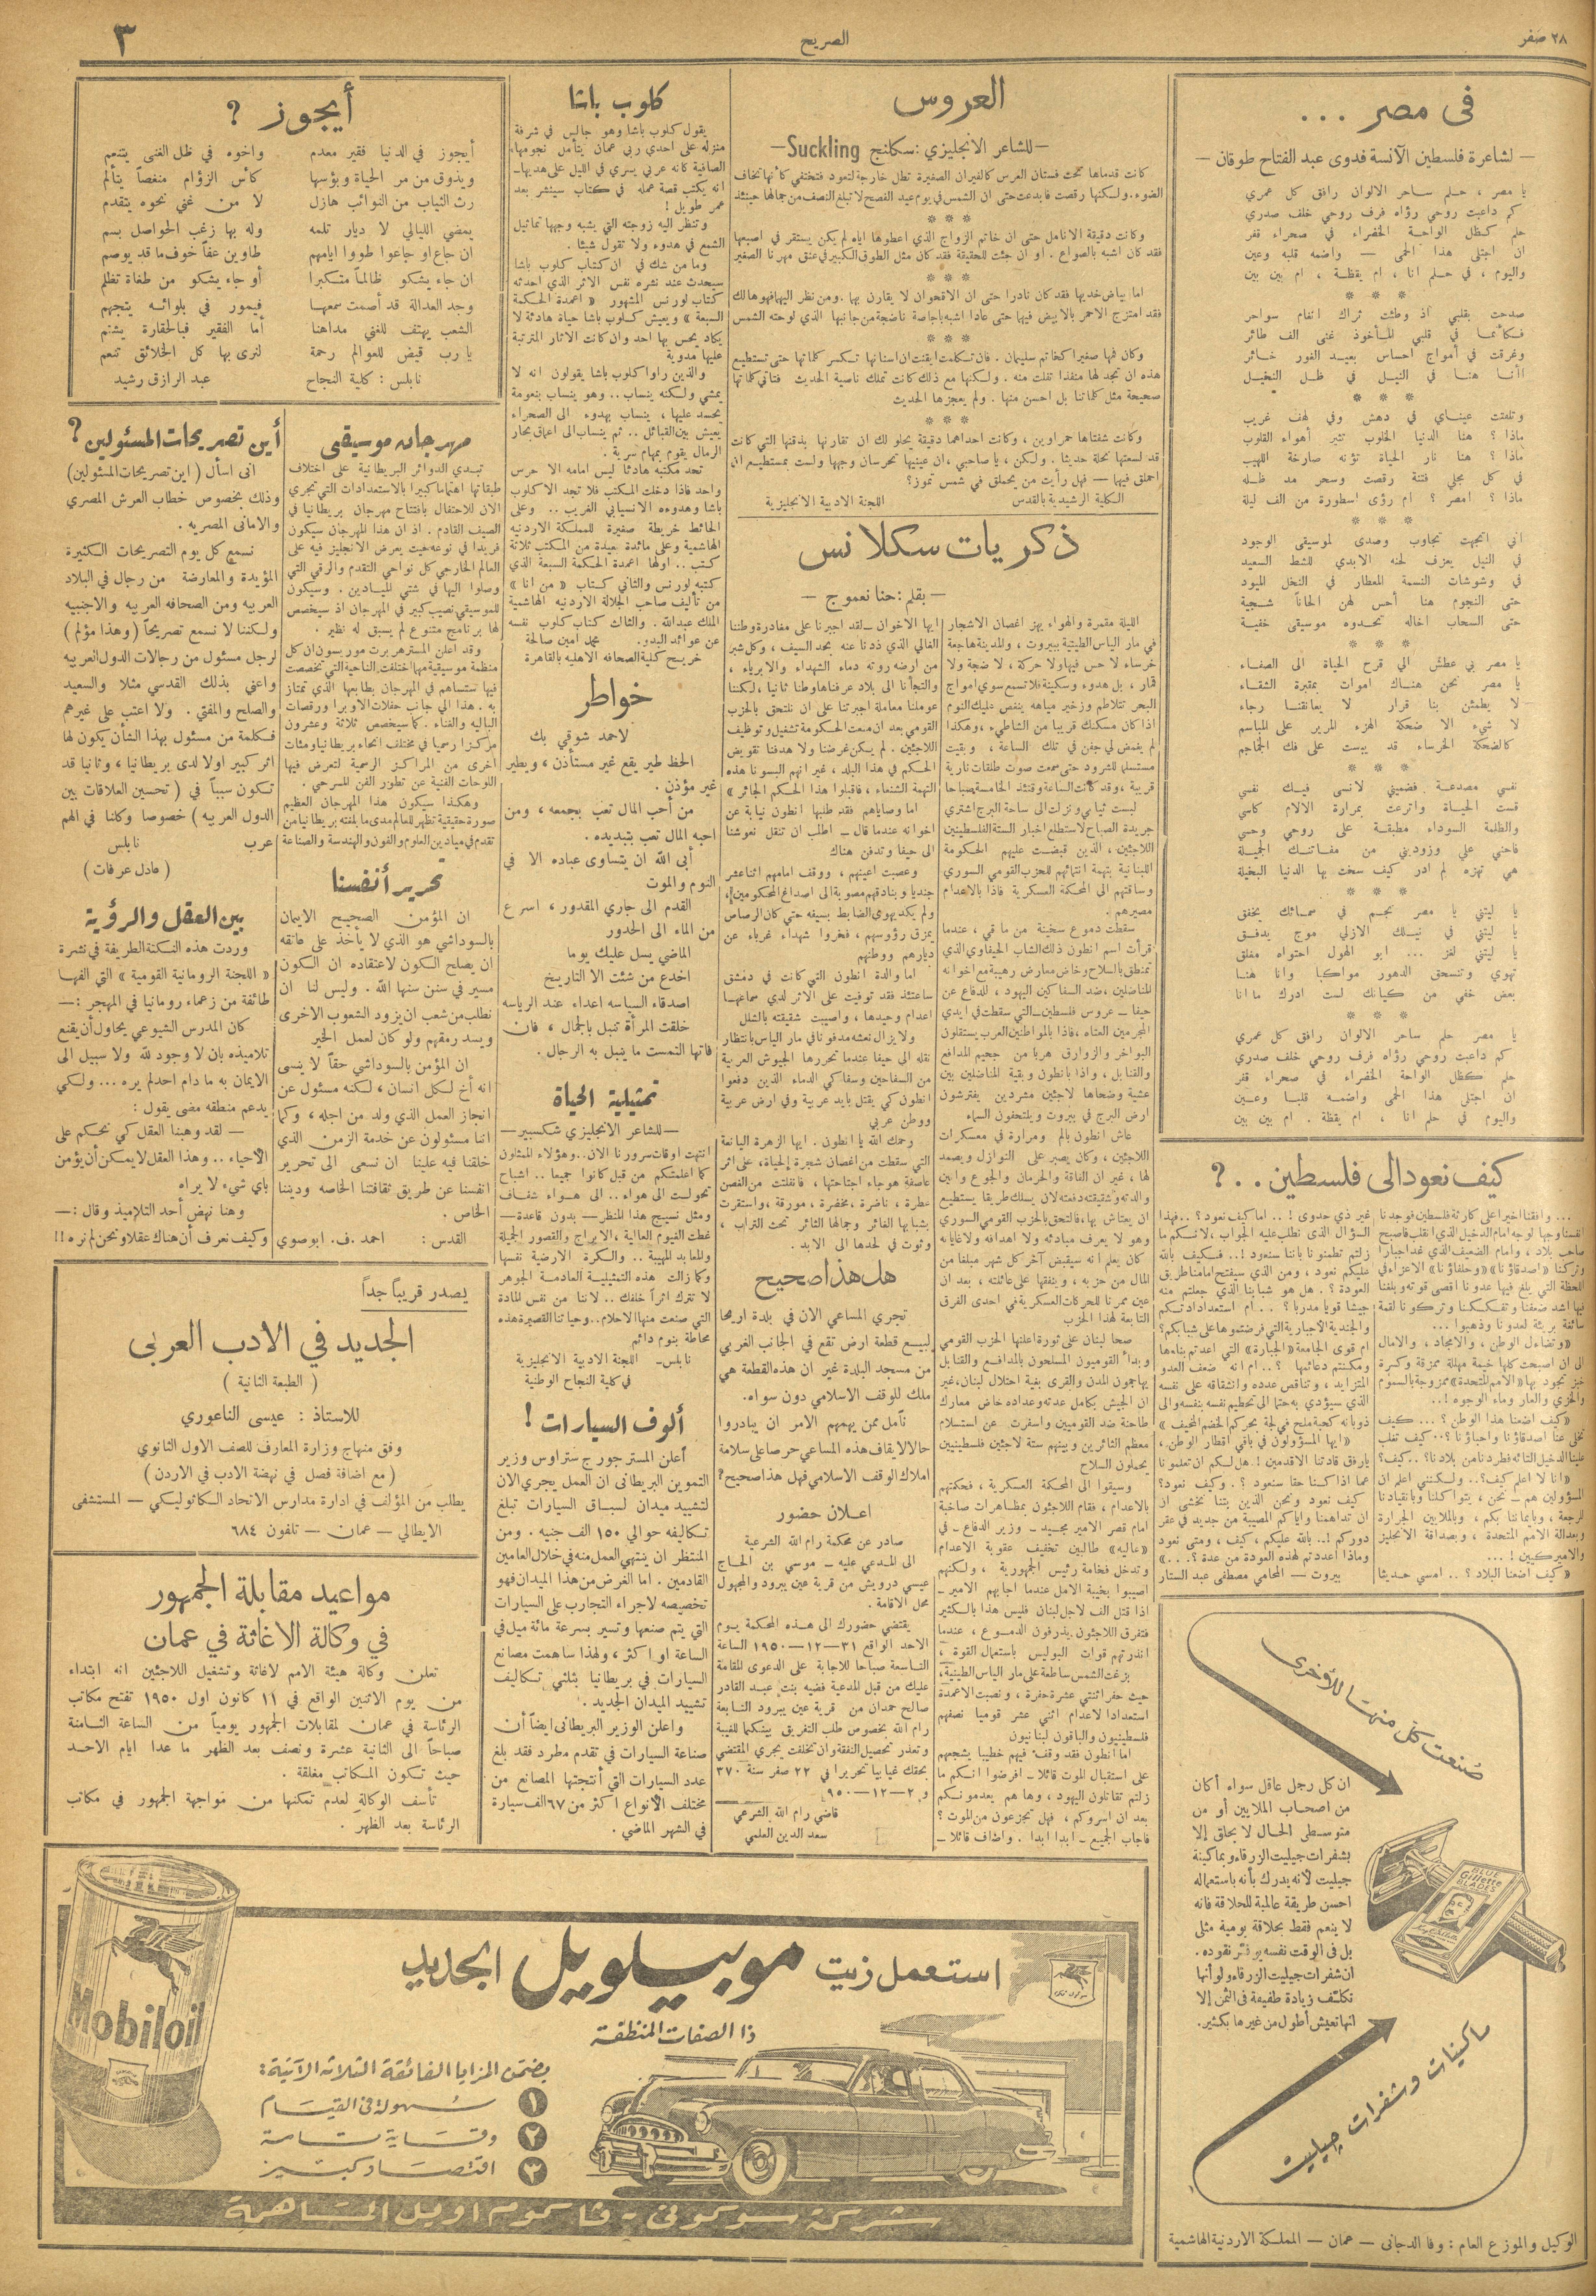 ٢٨ صفر
الصريح
٣
فى مصر ...
— لشاعرة فلسطين الآنسة فدوى عبد الفتاح طوقان —
يا مصر ، حلم ساحر الالوان رافق كل عمري
كم داعبت روحي رؤاه فرف روحي خلف صدري
حلم كظل الواحة الخضراء في صحراء قفر
ان اجتلى هذا الحمى — واضمه قلبه وعين
واليوم ، في حلم انا ، ام يقظة ، ام بين بين
* * *
صدحت بقلبي اذ وطئت ثراك انغام سواحر
فكأنما في قلبي المأخوذ غنى الف طائر
وغرقت في أمواج احساس بعيد الغور خائر
أأنا هنا في النيل في ظل النخيل
* * *
وتلفتت عيناي في دهش وفي لهف غريب
ماذا ؟ هنا الدنيا الخلوب تثير أهواء القلوب
ماذا ؟ هنا نار الحياة تؤنه صارخة اللهيب
في كل مجلي فتنة رقصت وسحر مد ظله
ماذا ؟ امصر ؟ ام رؤى اسطورة من الف ليلة
* * *
اني اتجهت تجاوب وصدى لموسيقى الوجود
في النيل يعزف لحنه الابدي للشط السعيد
في وشوشات النسمة المعطار في النخل الميود
حتى النجوم هنا أحس لهن الحاناً شجية
حتى السحاب اخاله تحدوه موسيقى خفية
* * *
يا مصر بي عطش الى قرح الحياة الى الصفاء
يا مصر نحن هناك اموات بمقبرة الشقاء
لا يطمئن بنا قرار لا يعانقنا رجاء
لا شيء الا ضحكة الهزء المرير على المباسم
كالضحكة الخرساء قد يبست على فك الجماجم
* * *
نفسي مصدعة فضميني لانسى فيك نفسي
قست الحياة واترعت بمرارة الالام كاسي
والظلمة السوداء مطبقة على روحي وحسي
فاحني علي وزوديني من مفاتنك الجميلة
هي نهزه لم ادر كيف سخت بها الدنيا البخيلة
* * *
يا ليتني يا مصر نجم في سمائك يخفق
يا ليتني في نيلك الازلي موج يدفق
يا ليتني لغز ... ابو الهول احتواه مغلق
تهوي وتنسحق الدهور مواكبا وانا هنا
بعض خفي من كيانك لست ادرك ما انا
* * *
يا مصر حلم ساحر الالوان رافق كل عمري
كم داعبت روحي رؤاه فرف روحي خلف صدري
حلم كظل الواحة الخضراء في صحراء قفر
ان اجتلى هذا الحمى واضمه قلبا وعين
واليوم في حلم انا ، ام يقظة . ام بين بين
كيف نعود الى فلسطين ..؟
... وافقنا اخيرا على كارثة فلسطين فوجدنا
انفسنا وجها لوجه امام الدخيل الذي انقلب فاصبح
صاحب بلاد ، وامام الضعيف الذي غدا جبارا
وتركنا « اصدقاؤنا » « وحلفاؤنا » الاعزاء في
اللحظة التي بلغ فيها عدونا اقصى قوته وبلغنا
فيها اشد ضعفنا وتفككنا وتركونا لقمة
سائغة بريئة لعدونا وذهبوا ...
«وتضاءل الوطن ، والامجاد ، والامال
الى ان اصبحت كلها خيمة مهلهلة ممزقة وكسرة
خبز تجود بها «الامم المتحدة» ممزوجة بالسموم
والخزي والعار وماء الوجوه !..
«كيف اضعنا هذا الوطن ؟ ... كيف
تخلى عنا اصدقاؤنا واحباؤنا ؟... كيف تغلب
علينا الدخيل التائه فطردنا من بلادنا؟ .. كيف؟
«انا لا اعلم كيف؟.. ولكنني اعلم ان
المسؤولين هم — نحن ، بتواكلنا وبانقيادنا
للرجعة ، وبإيماننا بكم ، وبالملايين الجرارة
وبعدالة الامم المتحدة ، وبصداقة الانجليز
والاميركيين ! ...
«كيف اضعنا البلاد ؟ .. امسى حديثا
غير ذي جدوى ! .. اما كيف نعود ؟ .. فهذا
السؤال الذي نطلب عليه الجواب ، لانكم ما
زلتم تطمنونا باننا سنعود !.. فكيف بالله
عليكم نعود ، ومن الذي سيفتح امامنا طريق
العودة ؟ . هل هو شبابنا الذي جعلتم منه
جيشا قويا مدربا ؟ . . ام استعدادا تكم
والجندية الاجبارية التي فرضتموها على شبابكم؟
ام قوى الجامعة «الجبارة» التي اعدتم بناءها
ومكنتم دعائمها ؟ .. ام انه ضعف العدو
المتزايد ، وتناقص عدده وانشقاقه على نفسه
الذي سيؤدي به حتما الى تحطيم نفسه بنفسه والى
ذوبانه كحبة ملح في لجة بحركم الخضم المخيف »
«ايها المسؤولون في باقي اقطار الوطن ،
يا رفاق قادتنا الاقدمين ! هل لكم ان تعلمونا
عما اذا كنا حقا سنعود ؟ . وكيف نعود؟
كيف نعود ونحن الذين بتنا نخشى از
ان تداهمنا واياكم المصيبة من جديد في عقر
دوركم !.. بالله عليكم ، كيف ، ومتى نعود
وماذا اعددتم لهذه العودة من عدة ؟. ..»
بيروت — المحامي مصطفى عبد الستار
صُنعت كل منهما للأخرى
ان كل رجل عاقل سواء أكان
من اصحاب الملايين أو من
متوسطى الحال لا يحلق إلا
بشفرات جيليت الزرقاء وبماكينة
جيليت لأنه يدرك بأنه باستعماله
احسن طريقة عالمية للحلاقة فانه
لا ينعم فقط بحلاقة يومية مثلى
بل فى الوقت نفسه يوفر نقوده.
ان شفرات جيليت الزرقاء ولو أنها
تكلف زيادة طفيفة فى الثمن إلا
انها تعيش أطول من غيرها بكثير.
BLUE
Gillette
BLADES
ماكينات وشفرات جيليت
الوكيل والموزع العام : وفا الدجانى — عمان — المملكة الاردنية الهاشمية
العروس
— للشاعر الانجليزي : سكانج Suckling —
كانت قدماها تحت فستان العرس كالفيران الصغيرة تطل خارجة لتعود فتختفي كأنها تخاف
الضوء . ولكنها رقصت فابدعت حتى ان الشمس في يوم عيد الفصح لا تبلغ النصف من جمالها حينئذ
* * *
وكانت دقيقة الانامل حتى ان خاتم الزواج الذي اعطوها اياه لم يكن يستقر في اصبعها
فقد كان اشبه بالصواع . او ان جئت للحقيقة فقد كان مثل الطوق الكبير في عنق مهرنا الصغير
* * *
اما بياض خديها فقد كان نادرا حتى ان الاقحوان لا يقارن بها . ومن نظر اليها فهو هالك
فقد امتزج الاحمر بالابيض فيها حتى عادا اشبه باجاصة ناضجة من جانبها الذي لوحته الشمس
* * *
وكان فمها صغيرا كخاتم سليمان . فان تكلمت ايقنت ان اسنانها تكسر كلماتها حتى تستطيع
هذه ان تجد لها منفذا تفلت منه . ولكنها مع ذلك كانت تملك ناصية الحديث فتاتي كلماتها
صحيحة مثل كلماتنا بل احسن منها . ولم يعجزها الحديث
* * *
وكانت شفتاها حمراوين ، وكانت احداهما دقيقة يحلو لك ان تقارنها بذقنها التي كانت
قد لسعتها نحلة حديثا . ولكن ، يا صاحبي ، ان عينيها تحرسان وجهها ولست بمستطيع ان
احملق فيها — فهل رأيت من يحملق في شمس تموز؟
الكلية الرشيدية بالقدس
اللجنة الادبية الانجليزية
ذكريات سكلانس
— بقلم : حنا نعموج —
الليلة مقمرة والهواء يهز اغصان الاشجار
في مار الياس الطينية ببيروت ، والمدينة هاجعة
خرساء لا حس فيها ولا حركة ، لا ضجة ولا
قمار ، بل هدوء وسكينة فلا تسمع سوى امواج
البحر تتلاطم وزخير مياهه ينغص عليك النوم
اذا كان مسكنك قريبا من الشاطىء ، وهكذا
لم يغمض لي جفن في تلك الساعة ، وبقيت
مستسلما للشرود حتى سمعت صوت طلقات نارية
قريبة ، وقد كانت الساعة وقتئذ الخامسة صباحا
لبست ثيابي ونزلت الى ساحة البرج اشتري
جريدة الصباح لاستطلع اخبار الستة الفلسطينيين
اللاجئين ، الذين قبضت عليهم الحكومة
اللبنانية بتهمة انتمائهم للحزب القومي السوري
وساقتهم الى المحكمة العسكرية فاذا بالاعدام
مصيرهم .
سقطت دموع سخينة من ماقي ، عندما
قرأت اسم انطون ذلك الشاب الحيفاوي الذي
تمنطق بالسلاح وخاض معارض رهيبة مع اخوانه
المناضلين ، ضد السفاكين اليهود ، للدفاع عن
حيفا — عروس فلسطين — التي سقطت في ايدي
المجرمين العتاه ، فاذا بالمواطنين العرب يستقلون
البواخر والزوارق هربا من جحيم المدافع
والقنابل ، واذا بانطون وبقية المناضلين بين
عشية وضحاها لاجئين مشردين يفترشون
ارض البرج في بيروت ويلتحفون السماء
عاش انطون بالم ومرارة في معسكرات
اللاجئين ، وكان يصبر على النوازل ويصمد
لها ، غير ان الفاقة والحرمان والجوع وانين
والدته وشقيقته دفعته لان يسلك طريقا يستطيع
ان يعتاش بها ، فالتحق بالحزب القومي السوري
وهو لا يعرف مبادئه ولا اهدافه ولا غاياته
كان يعلم انه سيقبض آخر كل شهر مبلغا من
المال من حزبه ، وينفقها على عائلته ، بعد ان
عين ممرنا للحركات العسكرية في احدى الفرق
التابعة لهذا الحزب
صحا لبنان على ثورة اعلنها الحزب القومي
وبدأ القوميون المسلحون بالمدافع والقنابل
يهاجمون المدن والقرى بغية احتلال لبنان ، غير
ان الجيش بكامل عدته وعداده خاض معارك
طاحنة ضد القوميين واسفرت عن استسلام
معظم الثائرين وبينهم ستة لاجئين فلسطينيين
يحملون السلاح
وسيقوا الى المحكمة العسكرية ، فحكمتهم
بالاعدام ، فقام اللاجئون بمظاهرات صاخبة
امام قصر الامير مجيد — وزير الدفاع — في
«عاليه» طالبين تخفيف عقوبة الاعدام
وتدخل فخامة رئيس الجمهورية ، ولكنهم
اصيبوا بخيبة الامل عندما اجابهم الامير —
اذا قتل الف لاجل لبنان فليس هذا بالكثير
فتفرق اللاجئون يذرفون الدموع ، عندما
انذرتهم قوات البوليس باستعمال القوة ،
بزغت الشمس ساطعة على مار الياس الطينية ،
حيث حفر اثنتي عشرة حفرة ، ونصبت الاعمدة
استعدادا لاعدام اثني عشر قوميا نصفهم
فلسطينيون والباقون لبنانيون
اما انطون فقد وقف فيهم خطيبا يشجعهم
على استقبال الموت قائلا — افرضوا انكم ما
زلتم تقاتلون اليهود ، وها هم يعدمونكم
بعد ان اسروكم ، فهل تجزعون من الموت ؟
فاجاب الجميع — ابدا ابدا . واضاف قائلا —
ايها الاخوان — لقد اجبرنا على مغادرة وطننا
الغالي الذي ذدنا عنه بحد السيف ، وكل شبر
من ارضه روته دماء الشهداء والابرياء ،
والتجأنا الى بلاد عرفناها وطنا ثانيا ، لكننا
عوملنا معاملة اجبرتنا على ان نلتحق بالحزب
القومي بعد ان منعت الحكومة تشغيل وتوظيف
اللاجئين . لم يكن غرضنا ولا هدفنا تقويض
الحكم في هذا البلد ، غير انهم البسونا هذه
التهمة الشنعاء ، فاقبلوا هذا الحكم الجائر »
اما وصاياهم فقد طلبها انطون نيابة عن
اخوانه عندما قال — اطلب ان تنقل نعوشنا
الى حيفا وتدفن هناك
وعصبت اعينهم ، ووقف امامهم اثنا عشر
جنديا وبنادقهم مصوبة الى اصداغ المحكومين ،
ولم يكد يهوى الضابط بسيفه حتى كان الرصاص
يمزق رؤوسهم ، فخروا شهداء غرباء عن
ديارهم ووطنهم
اما والدة انطون التي كانت في دمشق
ساعتئذ فقد توفيت على الاثر لدي سماعها
اعدام وحيدها ، واصيبت شقيقته بالشلل
ولا يزال نعشه مدفونا في مار الياس بانتظار
نقله الى حيفا عندما تحررها الجيوش العربية
من السفاحين وسفاكي الدماء الذين دفعوا
انطون كي يقتل بايد عربية وفي ارض عربية
ووطن عربي
رحمك الله يا انطون . ايها الزهرة اليانعة
التي سقطت من اغصان شجرة الحياة ، على اثر
عاصفة هوجاء اجتاحتها ، فانفلتت من الغصن
عطرة ، ناضرة ، مخضرة ، مورقة ، واستقرت
بشبابها الغائر وجمالها الثائر تحت التراب ،
وثوت في لحدها الى الابد .
هل هذا صحيح
تجري المساعي الان في بلدة اريحا
لبيع قطعة ارض تقع في الجانب الغربي
من مسجد البلدة غير ان هذه القطعة هي
ملك للوقف الاسلامي دون سواه.
نأمل ممن يهمهم الامر ان يبادروا
حالا لايقاف هذه المساعي حرصا على سلامة
املاك الوقف الاسلامي فهل هذا صحيح ؟
اعلان حضور
صادر عن محكمة رام الله الشرعية
الى المدعي عليه — موسى بن الحاج
عيسى درويش من قرية عين يبرود والمجهول
محل الاقامة .
يقتضي حضورك الى هذه المحكمة يوم
الاحد الواقع ٣١—١٢—١٩٥٠ الساعة
التاسعة صباحا للاجابة على الدعوى المقامة
عليك من قبل المدعية فضيه بنت عبد القادر
صالح حمدان من قرية عين يبرود التابعة
رام الله بخصوص طلب التفريق بينكما للغيبة
وتعذر تحصيل النفقة وان تخلفت يجري المقتضي
بحقك غيابيا تحريرا في ٢٢ صفر سنة ٣٧٠
و ٢—١٢—٩٥٠
قاضي رام الله الشرعي
سعد الدين العلمي
كلوب باشا
يقول كلوب باشا وهو جالس في شرفة
منزله على احدي ربى عمان يتأمل نجومها ،
الصافية كانه عربي يسري في الليل على هديها —
انه يكتب قصة عمله في كتاب سينشر بعد
عمر طويل !
وتنظر اليه زوجته التي يشبه وجهها تماثيل
الشمع في هدوء ولا تقول شيئا .
وما من شك في ان كتاب كلوب باشا
سيحدث عند نشره نفس الاثر الذي احدثه
كتاب لورنس المشهور « اعمدة الحكمة
السبعة » ويعيش كلوب باشا حياة هادئة لا
يكاد يحس بها احد وان كانت الاثار المترتبة
عليها مدوية
والذين راوا كلوب باشا يقولون انه لا
يمشي ولكنه ينساب .. وهو ينساب بنعومة
يحسد عليها ، ينساب بهدوء الى الصحراء
يعيش بين القبائل .. ثم ينساب الى اعماق بحار
الرمال يقوم بمهام سرية .
تجد مكتبه هادئا ليس امامه الا حرس
واحد فاذا دخلت المكتب فلا تجد الا كلوب
باشا وهدوءه الانسيابي الغريب .. وعلى
الحائط خريطة صغيرة للمملكة الاردنية
الهاشمية وعلى مائدة بعيدة من المكتب ثلاثة
كتب .. اولها اعمدة الحكمة السبعة الذي
كتبه لورنس والثاني كتاب « من انا »
من تأليف صاحب الجلالة الاردنيه الهاشمية
الملك عبدالله . والثالث كتاب كلوب نفسه
عن عوائد البدو. محمد امين صالحة
خريج كلية الصحافه الاهليه بالقاهرة
خواطر
لاحمد شوقي بك
الحظ طير يقع غير مستأذن ، ويطير
غير مؤذن .
من أحب المال تعب بجمعه ، ومن
احبه المال تعب بتبديده .
أبى الله ان يتساوى عباده الا في
النوم والموت
القدم الى جاري المقدور ، اسرع
من الماء الى الحدور
الماضي يسل عليك يوما
اخدع من شئت الا التاريخ
اصدقاء السياسه اعداء عند الرياسه
خلقت المرأة تنبل بالجمال ، فان
فاتها التمست ما ينبل به الرجال .
تمثيلية الحياة
— للشاعر الانجليزي شكسبير —
انتهت اوقات سرورنا الان .. وهؤلاء الممثلون
كما اعلمتكم من قبل كانوا جميعا .. اشباح
تحولت الى هواء .. الى هواء شفاف
ومثل نسيج هذا المنظر — بدون قاعدة —
غطت الغيوم العالية ، والابراج والقصور الجميلة
والمعابد المهيبة .. والكرة الارضية نفسها
وكما زالت هذه التمثيلية العادمة الجوهر
لا تترك اثرا خلفك .. لاننا من نفس المادة
التي صنعت منها الاحلام .. وحياتنا القصيرة هذه
محاطة بنوم دائم
نابلس — اللجنة الادبية الانجليزية
في كلية النجاح الوطنية
ألوف السيارات !
أعلن المستر جورج ستراوس وزير
التموين البريطانى ان العمل يجري الان
لتشييد ميدان لسباق السيارات تبلغ
تكاليفه حوالي ١٥٠ الف جنيه . ومن
المنتظر ان ينتهي العمل منه في خلال العامين
القادمين . اما الغرض من هذا الميدان فهو
تخصيصه لاجراء التجارب على السيارات
التي يتم صنعها وتسير بسرعة مائة ميل في
الساعة او اكثر ، ولهذا ساهمت مصانع
السيارات في بريطانيا بثلثي تكاليف
تشييد الميدان الجديد .
واعلن الوزير البريطانى ايضاً أن
صناعة السيارات في تقدم مطرد فقد بلغ
عدد السيارات التي أنتجتها المصانع من
مختلف الانواع اكثر من ٦٧ الف سيارة
في الشهر الماضي .
أيجوز ؟
أيجوز في الدنيا فقير معدم واخوه في ظل الغنى يتنعم
ويذوق من مر الحياة وبؤسها كأس الزؤام منغصاً يتألم
رث الثياب من النوائب هازل لا من غني نحوه يتقدم
يمضي الليالي لا ديار تلمه وله بها زغب الحواصل بسم
ان جاع او جاعوا طووا ايامهم طاوين عفاً خوف ما قد يوصم
ان جاء يشكو ظالماً متكبرا أو جاء يشكو من طغاة تظلم
وجد العدالة قد أصمت سمعها فيمور في بلوائه يتجهم
الشعب يهتف للغني مداهنا أما الفقير فبالحقارة يشتم
يا رب قيض للعوالم رحمة لنرى بها كل الخلائق تنعم
نابلس : كلية النجاح عبد الرازق رشيد
مهرجان موسيقى
تبدي الدوائر البريطانية على اختلاف
طبقاتها اهتماما كبيرا بالاستعدادات التي تجري
الان للاحتفال بافتتاح مهرجان بريطانيا في
الصيف القادم . اذ ان هذا المهرجان سيكون
فريدا في نوعه حيث يعرض الانجليز فيه على
العالم الخارجي كل نواحي التقدم والرقي التي
وصلوا اليها في شتى الميادين . وسيكون
للموسيقى نصيب كبير في المهرجان اذ سيخصص
لها برنامج متنوع لم يسبق له نظير .
وقد اعلن المستر هربرت موريسون ان كل
منظمة موسيقية مهما اختلفت الناحية التي تخصصت
فيها ستساهم في المهرجان بطابعها الذي تمتاز
به . هذا الى جانب حفلات الاوبرا ورقصات
الباليه والغناء . كما سيخصص ثلاثة وعشرون
مركزا رسميا في مختلف انحاء بريطانيا ومئات
أخرى من المراكز الرسمية لتعرض فيها
اللوحات الفنية عن تطور الفن المسرحي .
وهكذا سيكون هذا المهرجان العظيم
صورة حقيقية تظهر للعالم مدى ما بلغته بريطانيا من
تقدم في ميادين العلوم والفنون والهندسة والصناعة
تحرير أنفسنا
ان المؤمن الصحيح الايمان
بالسوداشي هو الذي لا يأخذ على عاتقه
ان يصلح الكون لاعتقاده ان الكون
مسير في سنن سنها الله . وليس لنا ان
نطلب من شعب ان يزود الشعوب الاخرى
ويسد رمقهم ولو كان لعمل الخير
ان المؤمن بالسوداشي حقاً لا ينسى
انه أخ لكل انسان ، لكنه مسئول عن
انجاز العمل الذي ولد من اجله ، وكما
اننا مسئولون عن خدمة الزمن الذي
خلقنا فيه علينا ان نسعى الى تحرير
انفسنا عن طريق ثقافتنا الخاصه وديننا
الخاص .
القدس : احمد .ف. ابوصوي
أين تصريحات المسئولين ؟
انى اسأل ( اين تصريحات المسئولين )
وذلك بخصوص خطاب العرش المصري
والامانى المصريه .
نسمع كل يوم التصريحات الكثيرة
المؤيدة والمعارضة من رجال في البلاد
العربيه ومن الصحافه العربيه والاجنبيه
ولكننا لا نسمع تصريحاً ( وهذا مؤلم )
لرجل مسئول من رجالات الدول العربيه
واعني بذلك القدسي مثلا والسعيد
والصلح والمفتي . ولا اعتب على غيرهم
فكلمة من مسئول بهذا الشأن يكون لها
اثر كبير اولا لدى بريطانيا ، وثانيا قد
تكون سبباً في ( تحسين العلاقات بين
الدول العربيه ) خصوصا وكلنا في الهم
عرب نابلس
( عادل عرفات )
بين العقل والرؤية
وردت هذه النكتة الطريفة في نشرة
« اللجنة الرومانية القومية » التي الفها
طائفة من زعماء رومانيا في المهجر :—
كان المدرس الشيوعي يحاول أن يقنع
تلاميذه بان لا وجود لله ولا سبيل الى
الايمان به ما دام احد لم يره ... ولكي
يدعم منطقه مضى يقول :
— لقد وهبنا العقل كي نحكم على
الاحياء .. وهذا العقل لا يمكن أن يؤمن
باي شيء لا يراه
وهنا نهض أحد التلاميذ وقال :—
وكيف نعرف أن هناك عقلا ونحن لم نره !!
يصدر قريباً جداً
الجديد في الادب العربى
( الطبعة الثانية )
للاستاذ : عيسى الناعوري
وفق منهاج وزارة المعارف للصف الاول الثانوي
( مع اضافة فصل في نهضة الادب في الاردن )
يطلب من المؤلف في ادارة مدارس الاتحاد الكاثوليكي — المستشفى
الايطالي — عمان — تلفون ٦٨٤
مواعيد مقابلة الجمهور
في وكالة الاغاثة في عمان
تعلن وكالة هيئة الامم لاغاثة وتشغيل اللاجئين انه ابتداء
من يوم الاثنين الواقع في ١١ كانون اول ١٩٥٠ تفتح مكاتب
الرئاسة في عمان لمقابلات الجمهور يومياً من الساعة الثامنة
صباحاً الى الثانية عشرة ونصف بعد الظهر ما عدا ايام الاحد
حيث تكون المكاتب مغلقة .
تأسف الوكالة لعدم تمكنها من مواجهة الجمهور في مكاتب
الرئاسة بعد الظهر .
استعمل زيت موبيلويل الجديد
ذا الصفات المنظفة
يضمن المزايا الفائقة الثلاثة الآتية:
١ سهولة فى القيام
٢ وقاية تامة
٣ اقتصاد كبير
Mobiloil
شركة سوكونى - ڤاكوم اويل المساهمة